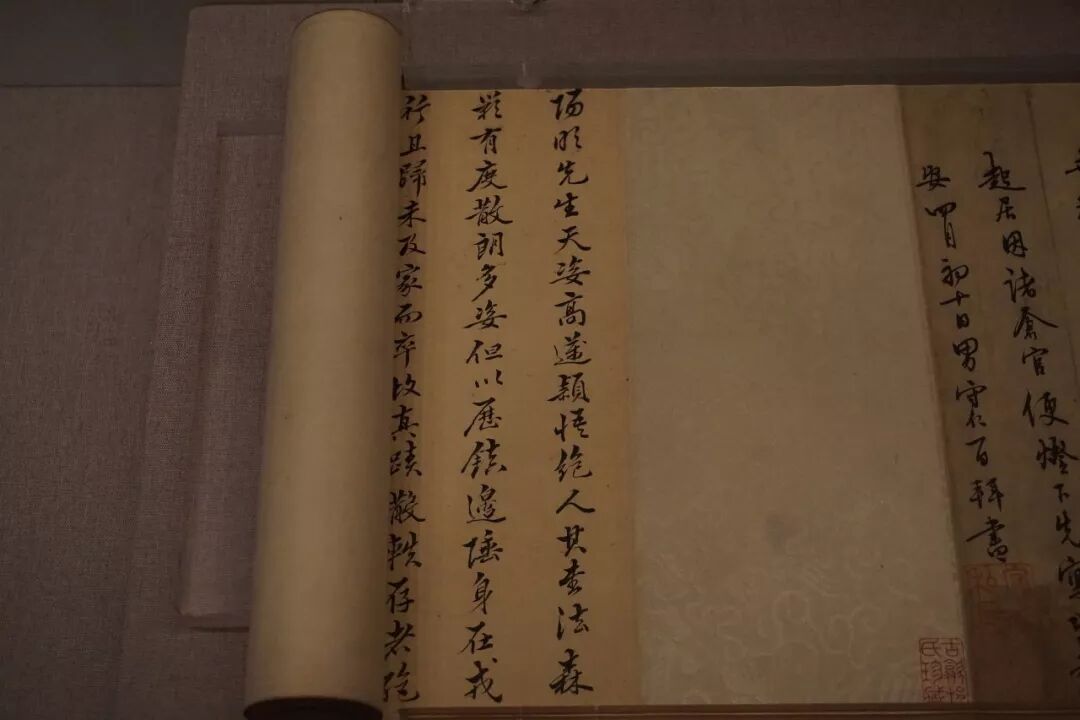 起居因諸倉官便燈下先寫
安四月初十日男守仁百拜書
陽明先生天姿高邁穎悟絶人其書法森
嚴有度散朗多姿但以歷鎮邊陲身在戎
行且歸未及家而卒故真蹟散軼存者絶